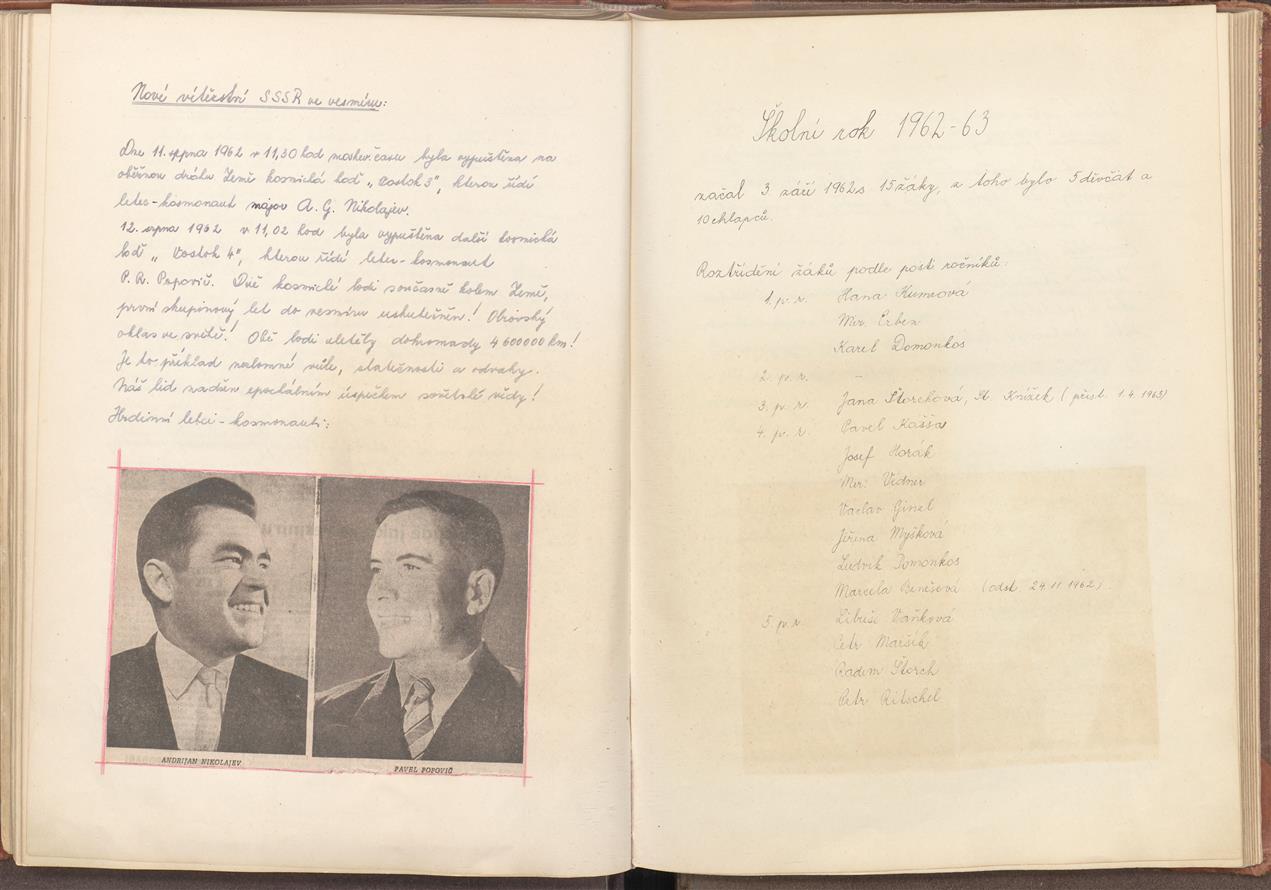 Nové vítězství SSSR ve vesmíru:
Dne 11. srpna 1962 v 11,30 hod moskev. času byla vypuštěna na
oběžnou dráhu Země kosmická loď „Vostok 3", kterou řídí
letec-kosmonaut major A. G. Nikolajev.
12. srpna 1962 v 11,02 hod byla vypuštěna další kosmická
loď „Vostok 4", kterou řídí letec-kosmonaut
P. R. Popovič. Dvě kosmické lodi současně kolem Země,
první skupinový let do vesmíru uskutečněn! Obrovský
ohlas ve světě! Obě lodi uletěly dohromady 4 600 000 km!
Je to příklad nezlomné vůle, statečnosti a odvahy.
Náš lid nadšen epochálním úspěchem sovětské vědy!
Hrdinní letci-kosmonauti:
ANDRIJAN NIKOLAJEV
PAVEL POPOVIČ
Školní rok 1962-63
začal 3 září 1962 s 15 žáky, z toho bylo 5 děvčat a
10 chlapců.
Roztřídění žáků podle post. ročníků:
1. p. r. Hana
Mir. Erben
Karel Domonkos
2. p. r. -
3. p. r. Jana Štorchová, St. Knížek (přist. 1.4.1963)
4. p. r. Pavel Kašša
Josef Horák
Mir. Vidner
Václav Ginel
Jiřina Myšková
Ludvík Domonkos
Marcela Benešová (odst. 24.11.1962).
5. p. r. Libuše Vaňková
Petr Maršík
Radim Štorch
Petr Ritschel